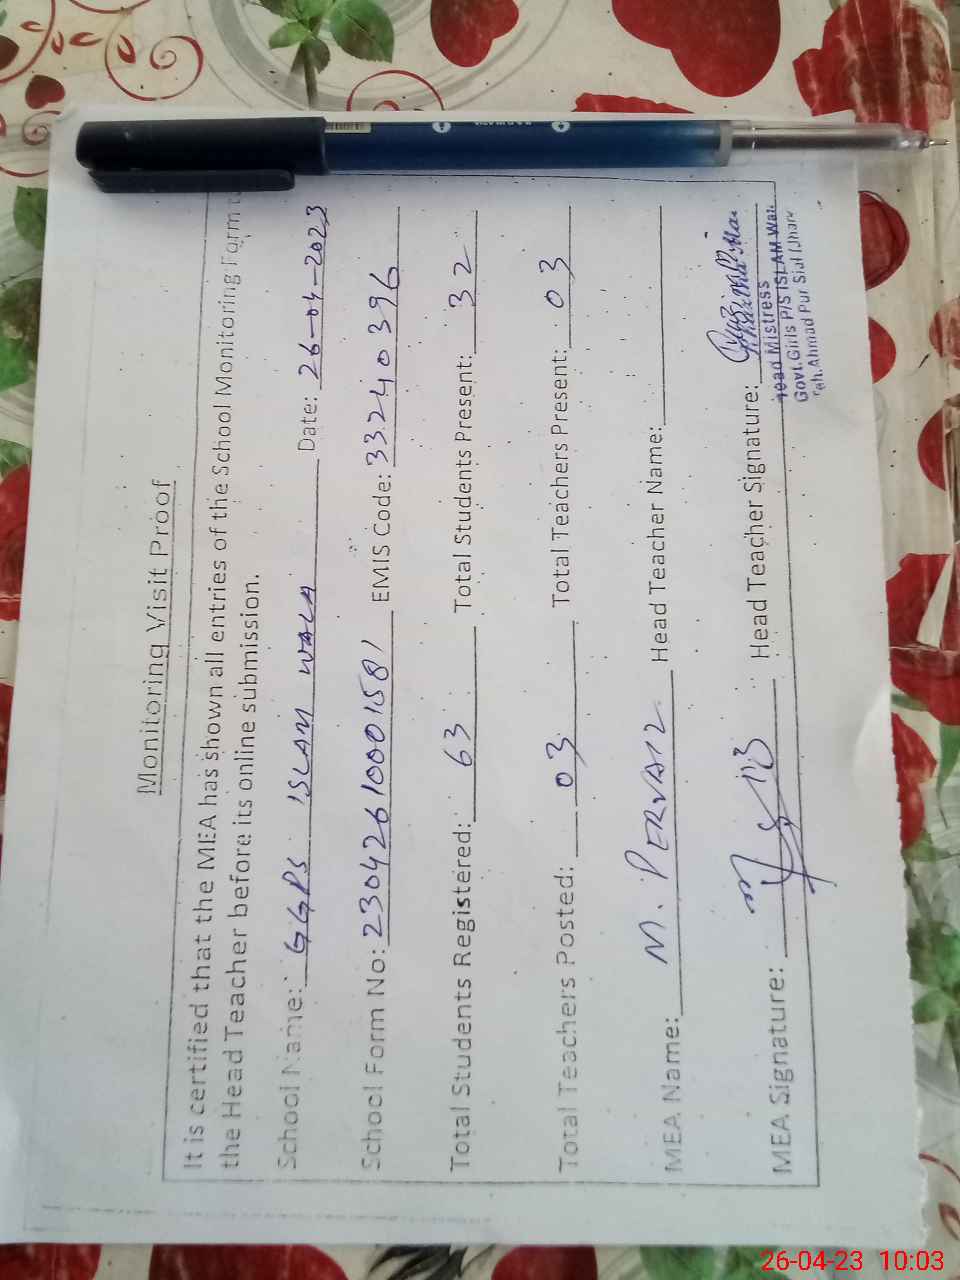 Monitoring Visit Proof
It is certified that the MEA has shown all entries of the School Monitoring Form
the Head Teacher before its online submission.
School Name: GGPS ISLAM WALA Date: 26-04-2023
School Form No: 230426100001581 EMIS Code: 33240396
Total Students Registered: 63 Total Students Present: 32
Total Teachers Posted: 03 Total Teachers Present: 03
MEA Name: M. PERVAIZ Head Teacher Name:
MEA Signature: Head Teacher Signature:
Head Mistress
Govt. Girls P/S ISLAM Wala
Teh. Ahmad Pur Sial (Jhang
26-04-23 10:03